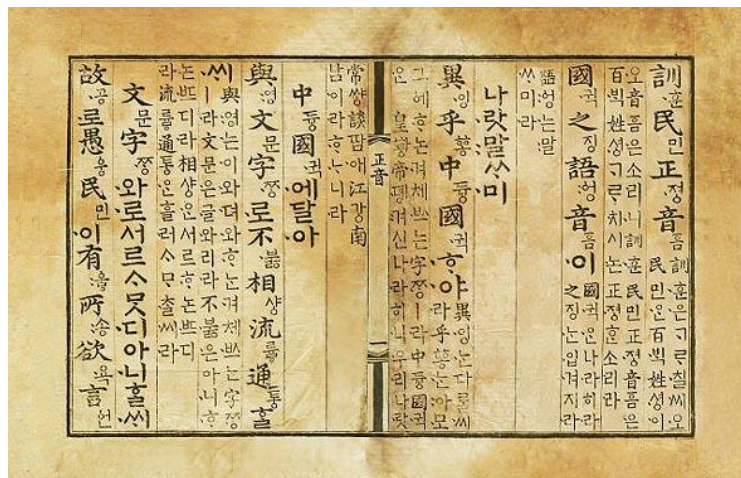 訓훈民민正졍音ᅙᅳᆷ 訓훈은ᄀᆞᄅᆞ칠씨오
民민ᄋᆞᆫ百ᄇᆡᆨ姓셩이
오音ᅙᅳᆷ은소리니訓훈民민正졍音ᅙᅳᆷ은
百ᄇᆡᆨ姓셩ᄀᆞᄅᆞ치시논正졍ᄒᆞᆫ소리라
國귁之징語ᅌᅥᆼ音ᅙᅳᆷ이 國귁ᄋᆞᆫ나라히라
之징ᄂᆞᆫ입겨지라
語ᅌᅥᆼ는말
ᄊᆞ미라
나랏말ᄊᆞ미
異잉乎ᅘᅩᆼ中듀ᇰ國귁ᄒᆞ야 異잉ᄂᆞᆫ다ᄅᆞᆯ씨
라乎ᅘᅩᆼᄂᆞᆫ아모
그ᅌᅦᄒᆞ논겨체ᄡᅳ는字ᄍᆞᆼㅣ라中듀ᇰ國귁
ᄋᆞᆫ皇ᅘᅪᇰ帝뎽겨신나라히니우리나랏
正音 一
常쌰ᇰ談땀애江가ᇰ南
남이라ᄒᆞᄂᆞ니라
中듀ᇰ國귁에달아
與영文문字ᄍᆞᆼ로不부ᇙ相샤ᇰ流류ᇢ通토ᇰᄒᆞᆯ
ᄊᆡ 與영는이와뎌와ᄒᆞ는겨체ᄡᅳ는字ᄍᆞᆼ
ㅣ라文문은글와리라不부ᇙ은아니ᄒᆞ
논ᄠᅳ디라相샤ᇰᄋᆞᆫ서르ᄒᆞ논ᄠᅳ디
라流류ᇢ通토ᇰᄋᆞᆫ흘러ᄉᆞᄆᆞᄎᆞᆯ씨라
文문字ᄍᆞᆼ와로서르ᄉᆞᄆᆞᆺ디아니ᄒᆞᆯᄊᆡ
故공로愚ᅌᅮᆼ民민이有우ᇢ所송欲욕言ᅌᅥᆫ